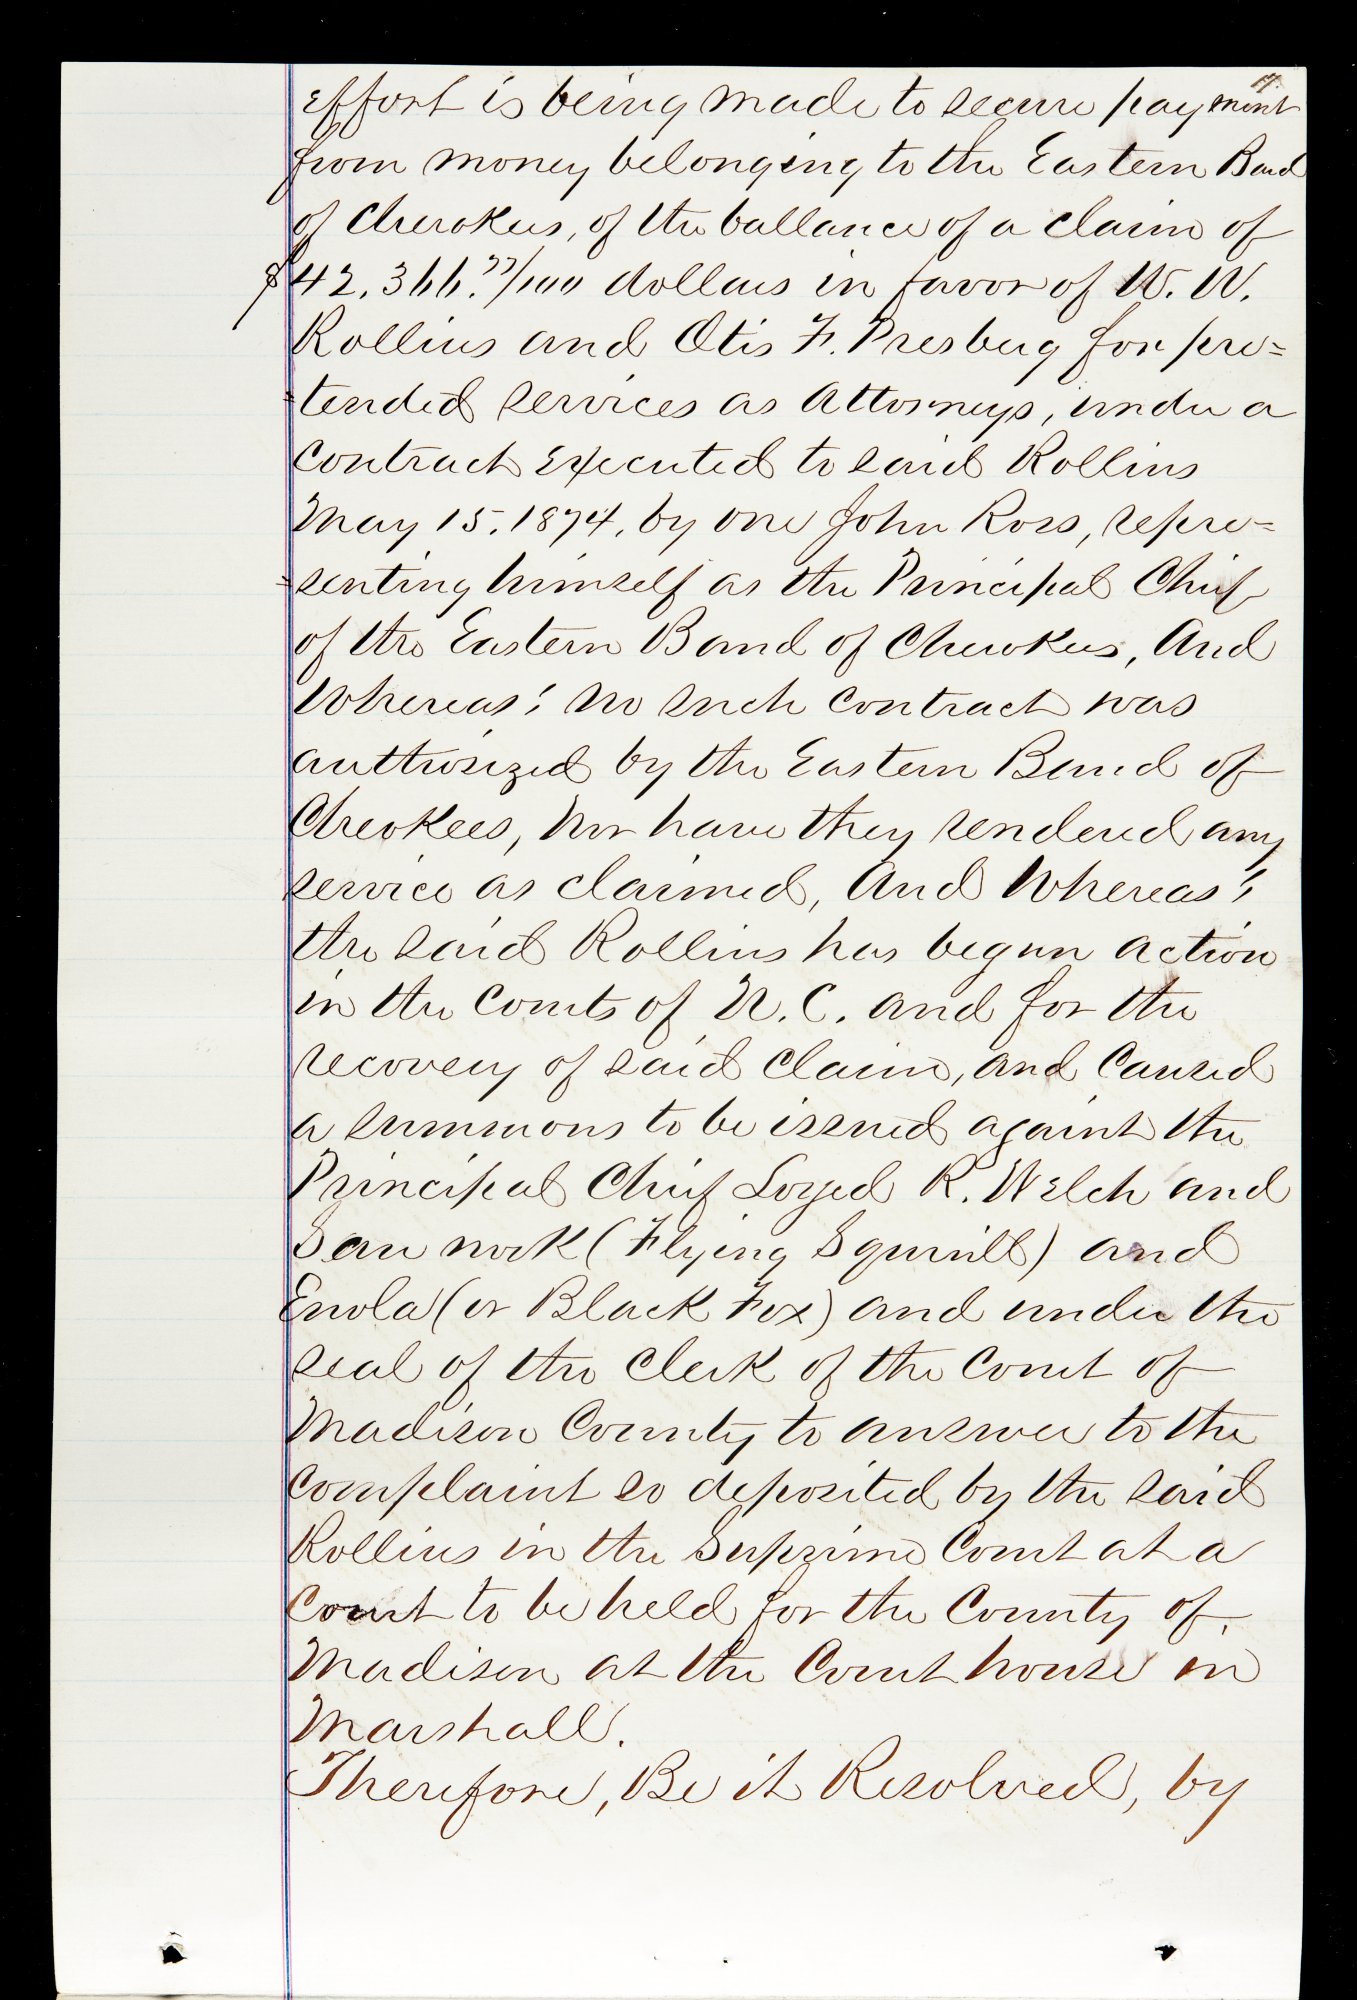 17.
Effort is being made to secure payment
from money belonging to the Eastern Band
of Cherokees, of the ballance of a claim of
$42,366.77/100 dollars in favor of W. W.
Rollins and Otis F. Presbug for pre=
=tended services as Attorneys, under a
contract executed to said Rollins
May 15, 1874, by one John Ross, repre=
=senting himself as the Principal Chief
of the Eastern Band of Cherokees, And
Whereas; no such contract was
authorized by the Eastern Band of
Cherokees, nor have they rendered any
service as claimed, And Whereas;
the said Rollins has begun action
in the Courts of N.C. and for the
recovery of said claim, and Caused
a summons to be issued against the
Principal Chief Loyed R. Welch and
Sau nook (Flying Squirrill) and
Enola (or Black Fox) and under the
seal of the Clerk of the Court of
Madison County to answer to the
complaint so deposited by the said
Rollins in the Suprime Court at a
Court to be held for the County of
Madison at the Court house in
Marshall.
Therefore, Be it Resolved, by